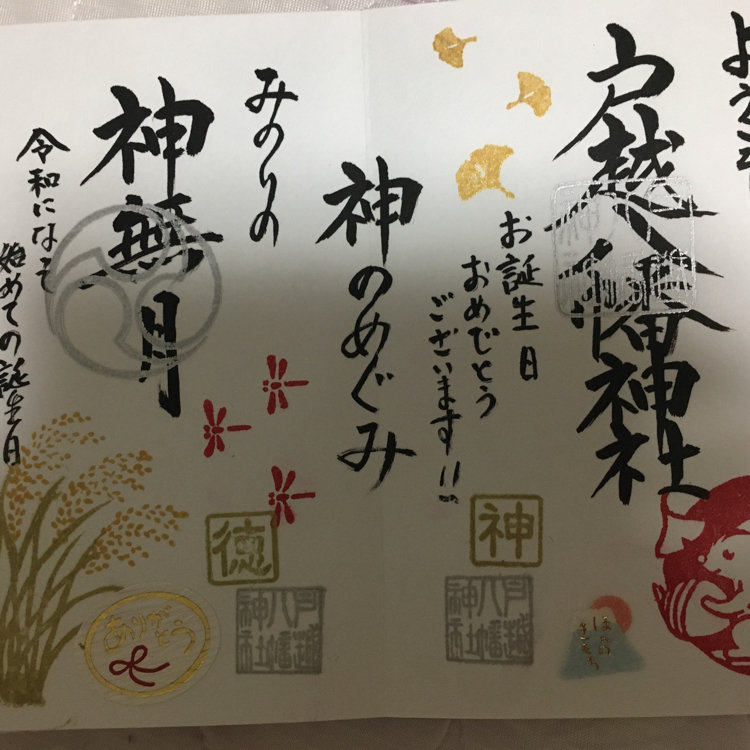 戸越八幡神社
お誕生日
おめでとう
ございます!!
神のめぐみ
みのりの
神無月
令和になって
始めての誕生日
神
徳
戸越
八幡
神社
戸越
八幡
神社
ありがとう